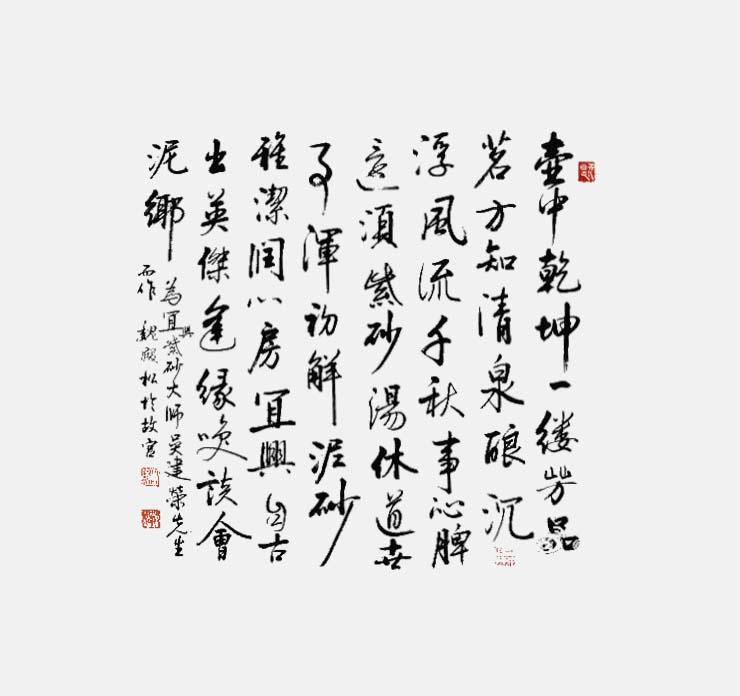 壺中乾坤一縷芳品
茗方知清泉酿沉
浮風流千秋事沁脾
還須紫砂湯休道世
事渾初解泥砂
雅潔潤心房冝興自古
出英傑逢緣咲談會
泥鄉
為冝興紫砂大師吳建榮先生
而作 魏殿松於故宮